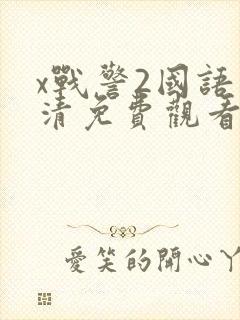 x戰警2國語
清免費觀看
愛笑的開心丫